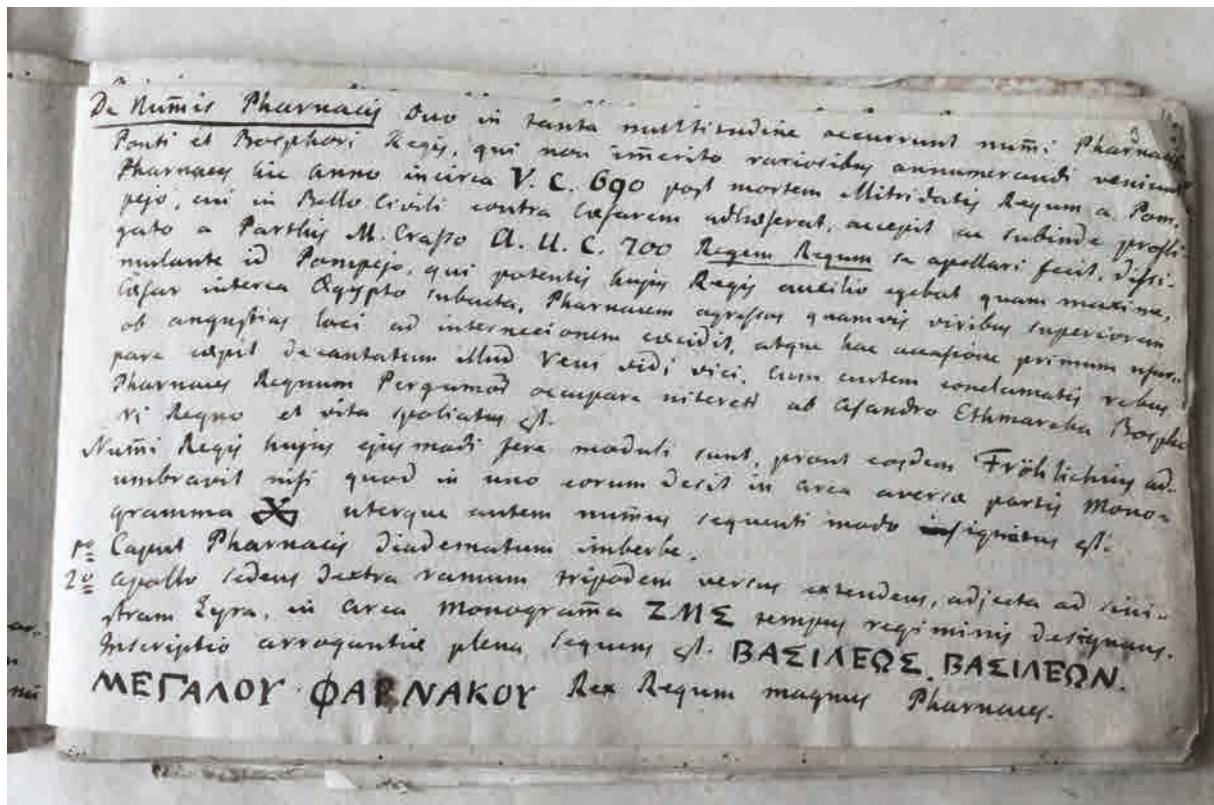 De Num̄is Pharnacis Duo in tanta multitudine occurrunt num̄i Pharnacis
Ponti et Bosphori Regis, qui non im̄erito rarioribus annumerandi veniunt
Pharnaces hic anno incirca V. C. 690 post mortem Mitridatis Regnum a Pom,
pejo, cui in Bello Civili contra Cæsarem adhæserat, accepit ac subinde profli-
gato a Parthis M. Crasso A. U. C. 700 Regem Regum se apellari fecit, dissi-
mulante id Pompejo, qui potentis hujus Regis auxilio egebat quam maxime,
Cæsar interea Ægypto subacta, Pharnacem agressus quamvis viribus superiorem
ob angustias loci ad internecionem cæcidit, atque hac occasione primum usur-
pare cœpit decantatum illud Veni vidi vici. Cum autem conclamatis rebus
Pharnaces Regnum Pergamod occupare niteretr ab Asandro Ethnarcha Bospho
ri Regno et vita spoliatus est.
Num̄i Regis hujus ejusmodi fere moduli sunt, prout eosdem Fröhlichius ad-
umbravit nisi quod in uno eorum desit in area aversæ partis Mono-
gramma uterque autem num̄us sequenti modo signatus est.
1º Caput Pharnacis diadematum imberbe.
2º Apollo sedens dextra ramum tripodem versus extendens, adjecta ad sini-
stram Lyra, in area Monogram̄a ΖΜΣ tempus regiminis designans.
Inscriptio arrogantiæ plena sequens est. ΒΑΣΙΛΕΩΣ. ΒΑΣΙΛΕΩΝ.
ΜΕΓΑΛΟΥ ΦΑΡΝΑΚΟΥ Rex Regum magnus Pharnaces.